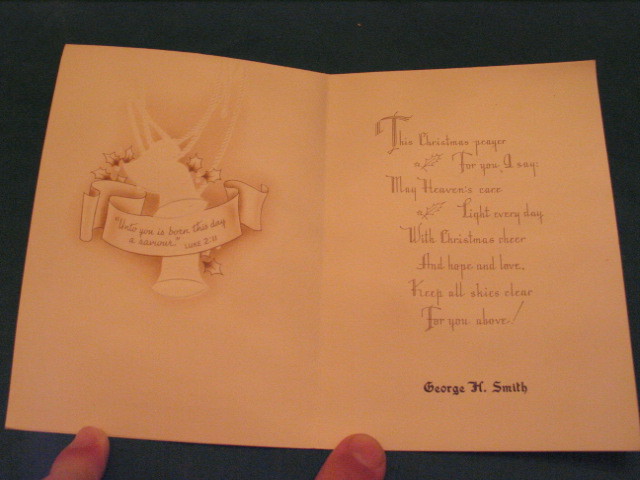 "Unto you is born this day
a saviour." LUKE 2:11
This Christmas prayer
For you, I say:
May Heaven's care
Light every day
With Christmas cheer
And hope and love,
Keep all skies clear
For you above!
George H. Smith